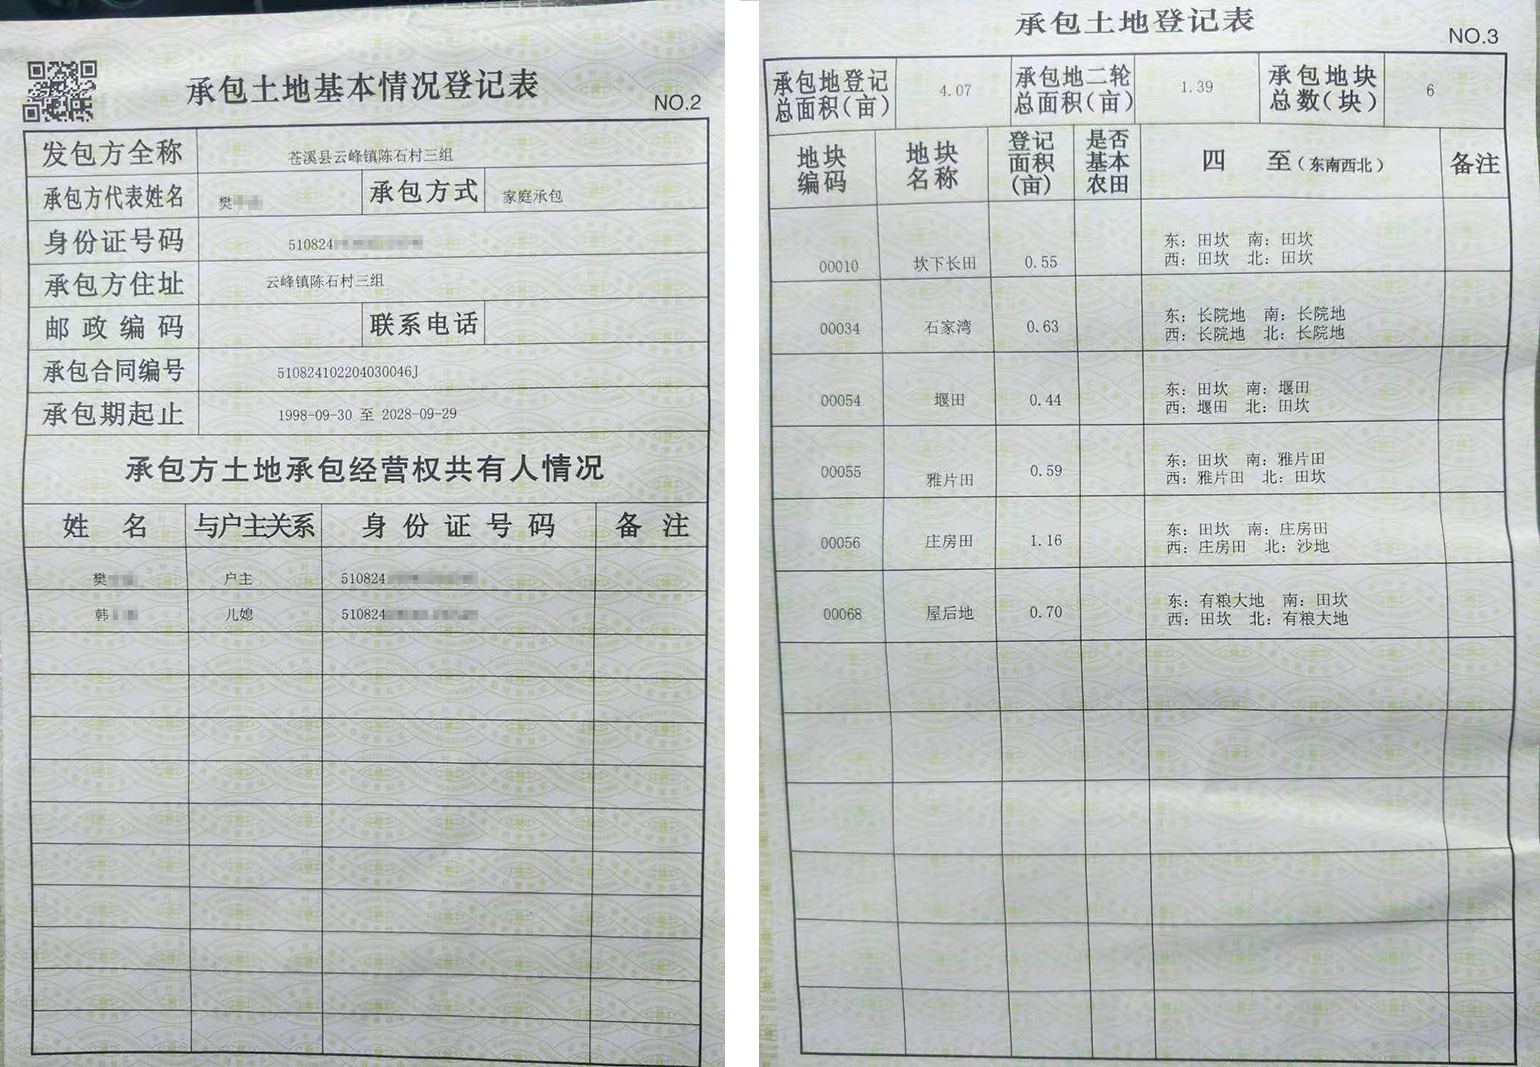 承包土地基本情况登记表
NO.2
发包方全称 苍溪县云峰镇陈石村三组
承包方代表姓名 樊 承包方式 家庭承包
身份证号码 510824
承包方住址 云峰镇陈石村三组
邮政编码 联系电话
承包合同编号 510824102204030046J
承包期起止 1998-09-30 至 2028-09-29
承包方土地承包经营权共有人情况
姓名 与户主关系 身份证号码 备注
樊 户主 510824
韩 儿媳 510824
承包土地登记表
NO.3
承包地登记总面积(亩) 4.07 承包地二轮总面积(亩) 1.39 承包地块总数(块) 6
地块编码 地块名称 登记面积(亩) 是否基本农田 四至(东南西北) 备注
00010 坎下长田 0.55 东：田坎 南：田坎
西：田坎 北：田坎
00034 石家湾 0.63 东：长院地 南：长院地
西：长院地 北：长院地
00054 堰田 0.44 东：田坎 南：堰田
西：堰田 北：田坎
00055 雅片田 0.59 东：田坎 南：雅片田
西：雅片田 北：田坎
00056 庄房田 1.16 东：田坎 南：庄房田
西：庄房田 北：沙地
00068 屋后地 0.70 东：有粮大地 南：田坎
西：田坎 北：有粮大地